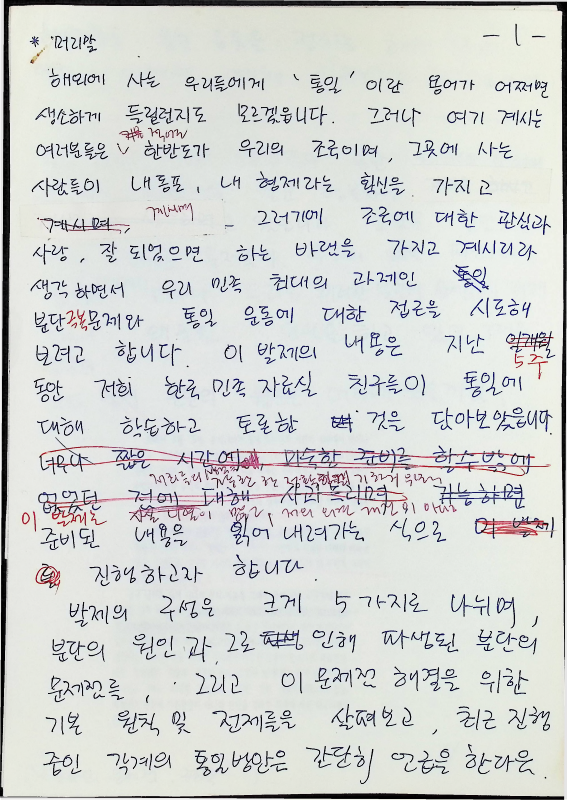 - 1 -
* 머리말
해외에 사는 우리들에게 '통일' 이란 용어가 어쩌면
생소하게 들릴런지도 모르겠읍니다. 그러나 여기 계시는
여러분들은 한반도가 우리의 조국이며, 그곳에 사는
사람들이 내 동포, 내 형제라는 확신을 가지고
계시며, 계시며 그러기에 조국에 대한 관심과
사랑, 잘 되었으면 하는 바램을 가지고 계시리라
생각하면서 우리 민족 최대의 과제인 통일
분단극복문제와 통일 운동에 대한 접근을 시도해
보려고 합니다. 이 발제의 내용은 지난 일개월
5주
동안 저희 한국 민족 자료실 친구들이 통일에
대해 학습하고 토론한 것을 담아보았읍니다.
너무나 짧은 시간에 미숙한 준비를 할 수 밖에
없었던 점에 대해 사과드리며 가능하면
이 발제는
준비된 내용을 읽어 내려가는 식으로 이 발제
를 진행하고자 합니다.
발제의 구성은 크게 5가지로 나뉘며,
분단의 원인과 그로 파생 인해 파생된 분단의
문제점들, 그리고 이 문제점 해결을 위한
기본 원칙 및 전제들을 살펴보고, 최근 진행
중인 각계의 통일방안은 간단히 언급을 한다음.